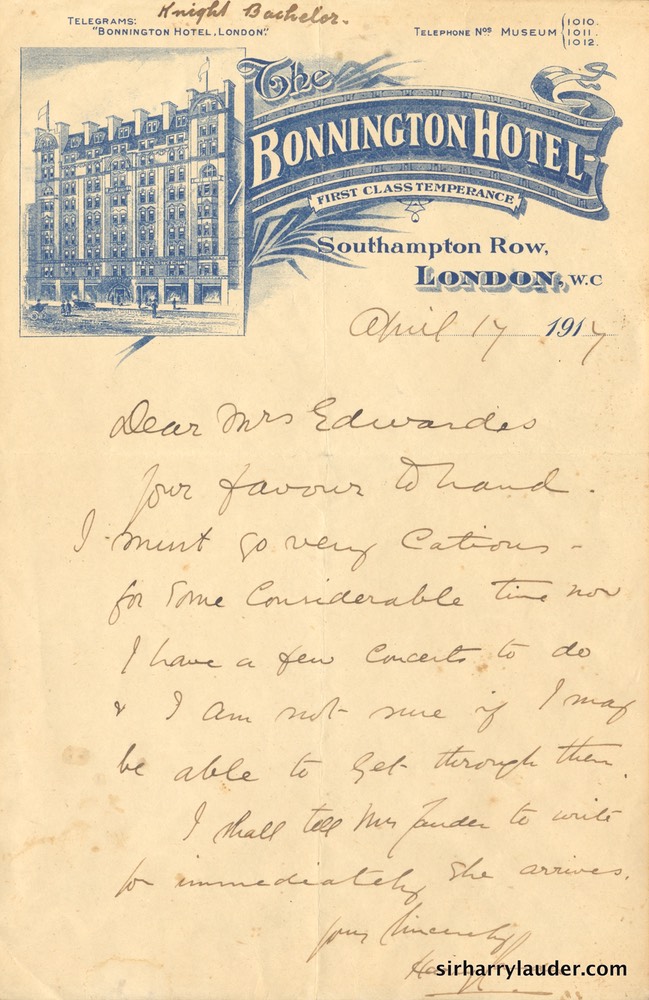 Knight Bachelor.
TELEGRAMS:
"BONNINGTON HOTEL, LONDON."
TELEPHONE Nos MUSEUM {1010.
1011.
1012.
The
BONNINGTON HOTEL
FIRST CLASS TEMPERANCE
Southampton Row,
LONDON, W.C
April 17 1917
Dear Mrs Edwardes
your favour to hand.
I must go very Catious -
for Some Considerable time now
I have a few Concerts to do
& I am not sure if I may
be able to get through them.
I shall tell Mrs Lauder to write
immediately She arrives.
yours Sincerely
sirharrylauder.com